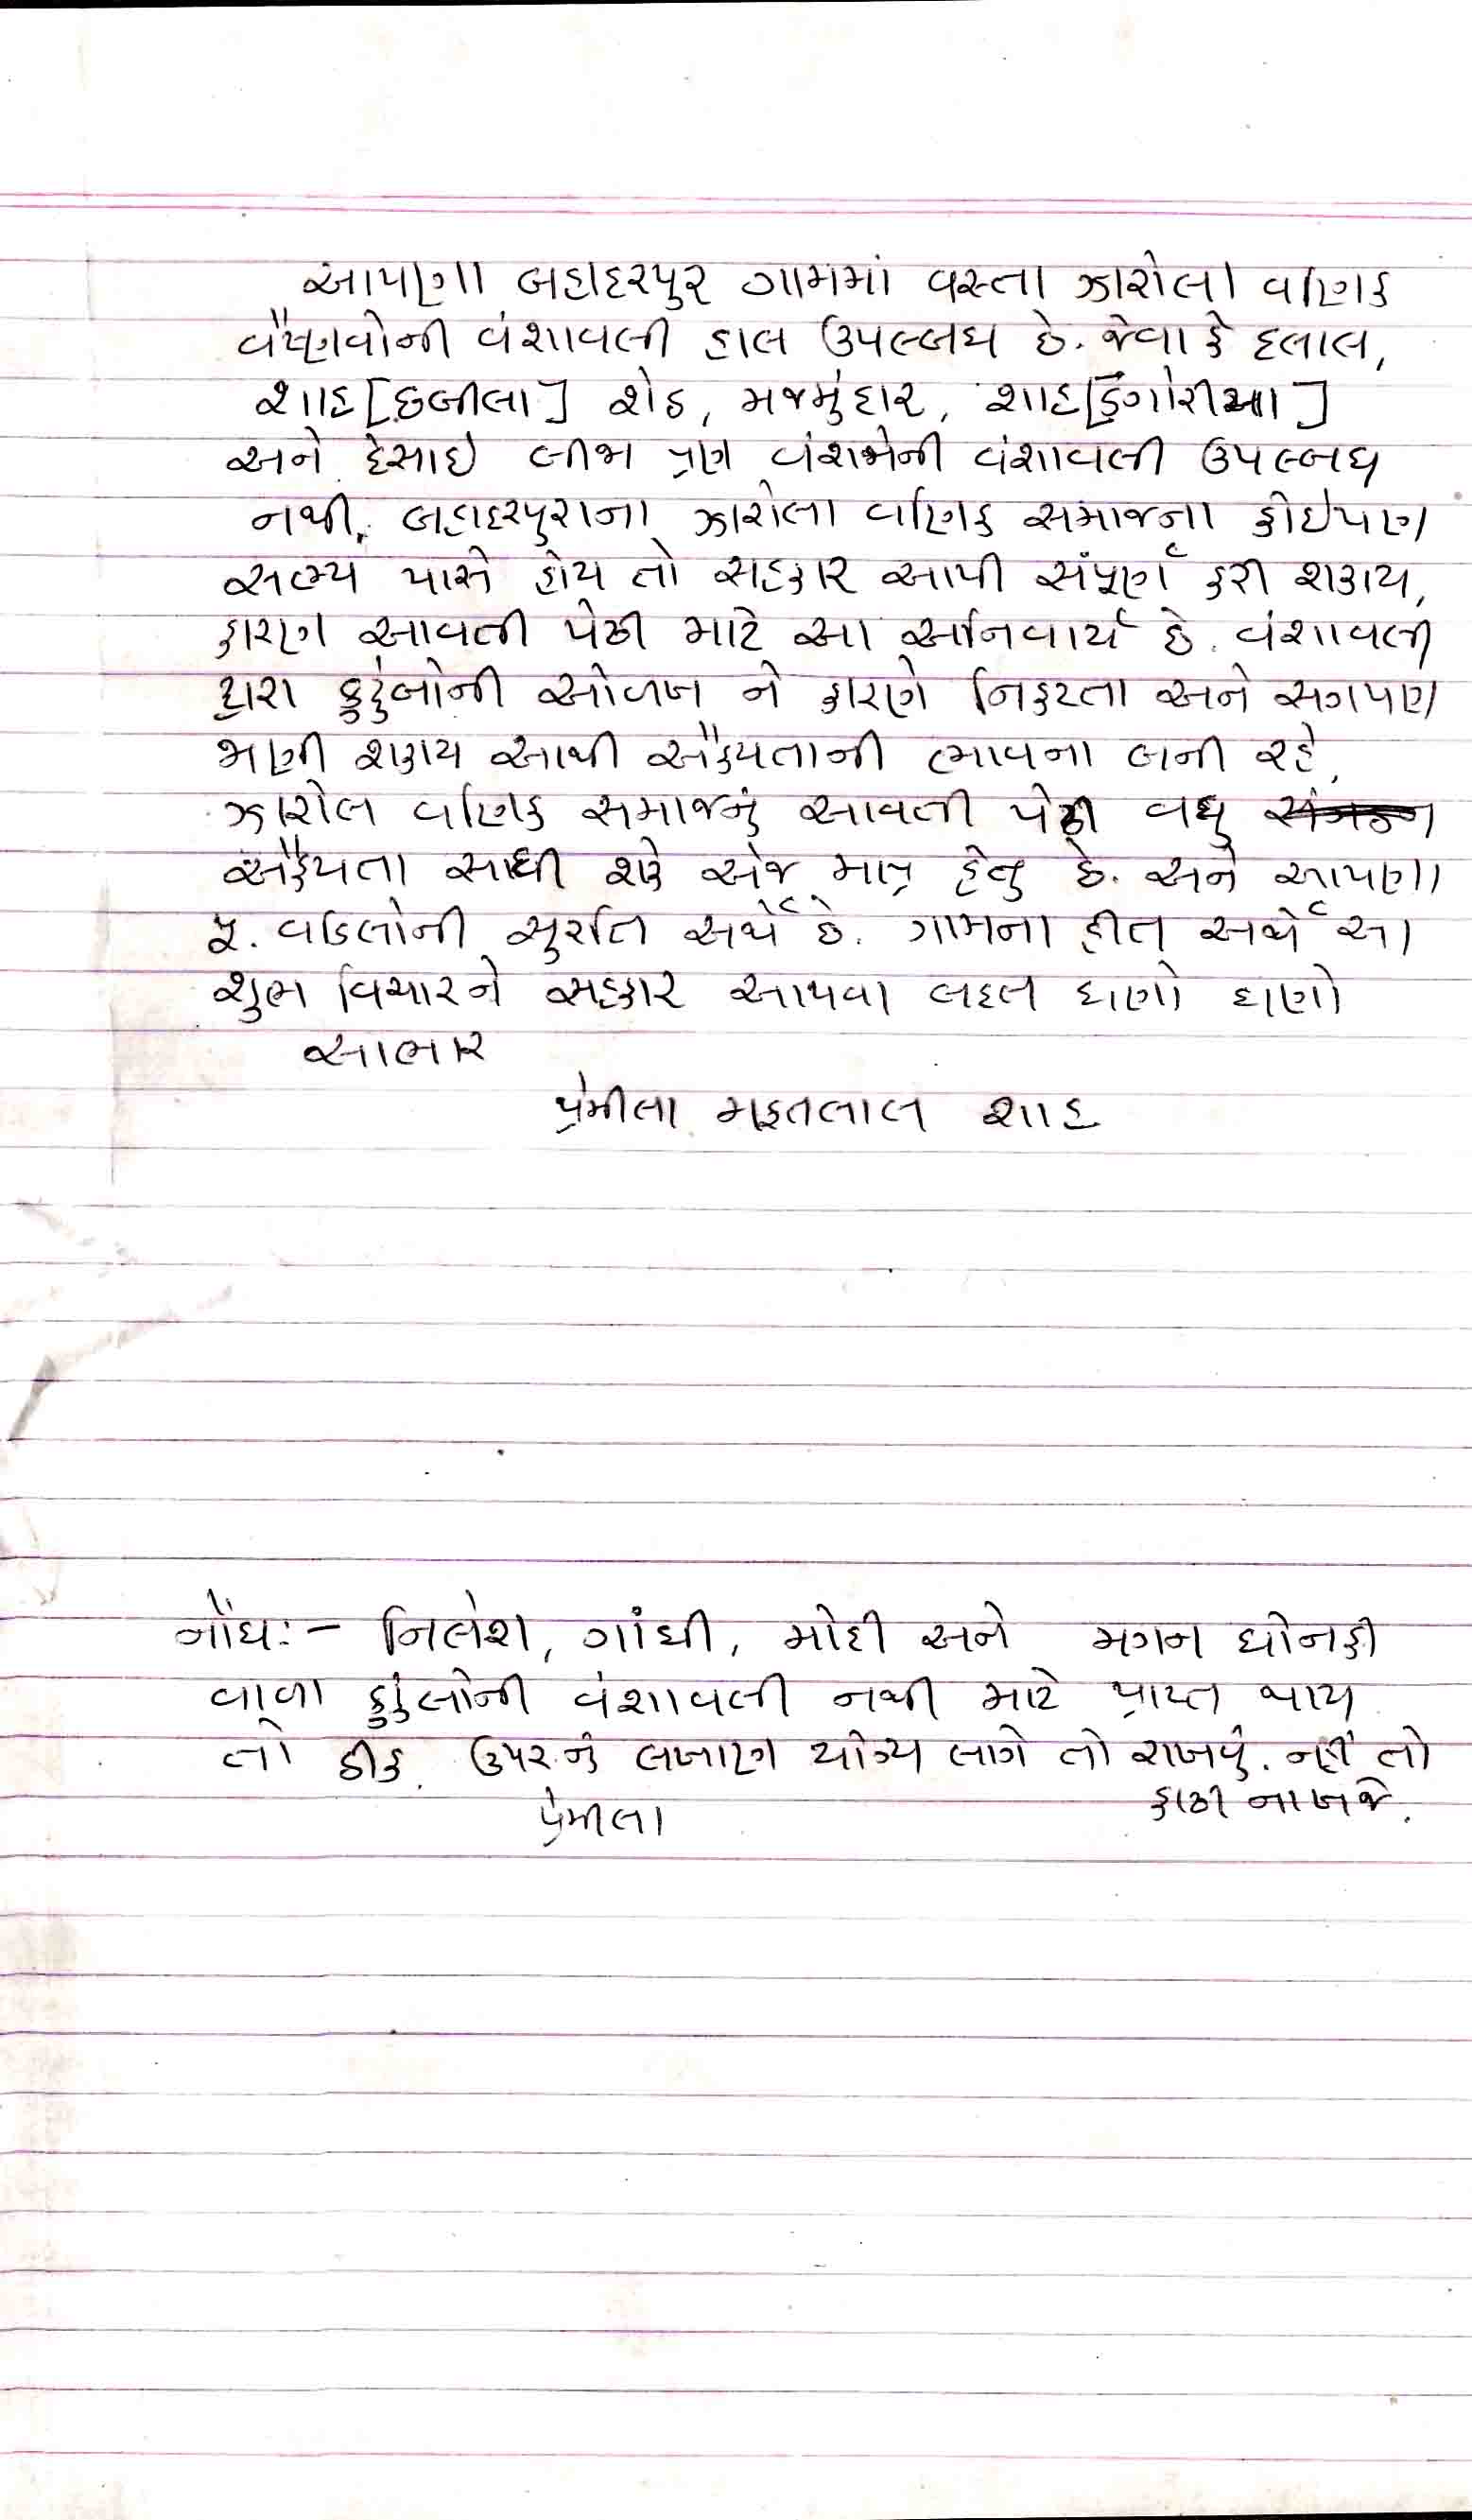 આપણા બહાદરપુર ગામમાં વસ્તા ઝારોલા વણિક
વૈષ્ણવોની વંશાવલી હાલ ઉપલ્બધ છે. જેવા કે દલાલ,
શાહ [છબીલા] શેઠ, મજમુંદાર, શાહ [ડુંગોરીઆ]
અને દેસાઇ બીજા ત્રણ વંશજોની વંશાવલી ઉપલ્બધ
નથી. બહાદરપુરાના ઝારોલા વણિક સમાજના કોઇપણ
સભ્ય પાસે હોય તો સહકાર આપી સંપૂર્ણ કરી શકાય,
કારણ આવતી પેઢી માટે આ અનિવાર્ય છે. વંશાવલી
દ્વારા કુટુંબોની ઓળખ ને કારણે નિકટતા અને સગપણ
જાણી શકાય આથી ઐક્યતાની ભાવના બની રહે,
ઝારોલ વણિક સમાજનું આવતી પેઢી વધુ
ઐક્યતા સાધી શકે એજ માત્ર હેતુ છે. અને આપણા
પૂ. વડિલોની સ્મૃતિ અર્થે છે. ગામના હીત અર્થે આ
શુભ વિચારને સહકાર આપવા બદલ ઘણો ઘણો
આભાર
પ્રેમીલા મફતલાલ શાહ
નોંધઃ- નિલેશ, ગાંધી, મોદી અને મગન ધોનકી
વાળા કુટુંબોની વંશાવલી નથી માટે પ્રાપ્ત થાય
તો ઠીક. ઉપરનું લખાણ યોગ્ય લાગે તો રાખવું. નહીં તો
કાઢી નાખજે.
પ્રેમીલા